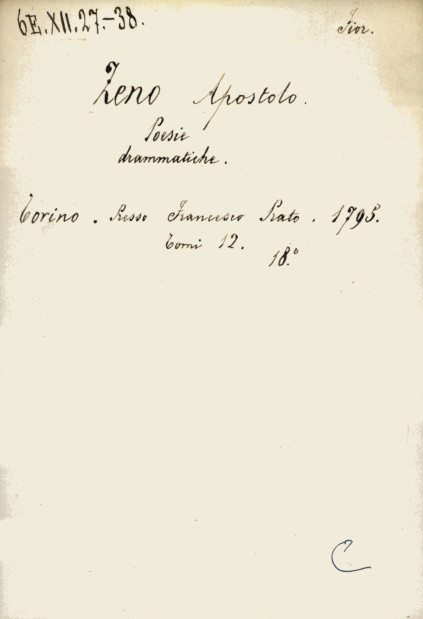 6E.XII.27.-38. Fior.
Zeno Apostolo.
Poesie
drammatiche.
Torino. Presso Francesco Prato. 1795.
Tomi 12.
18.°
C